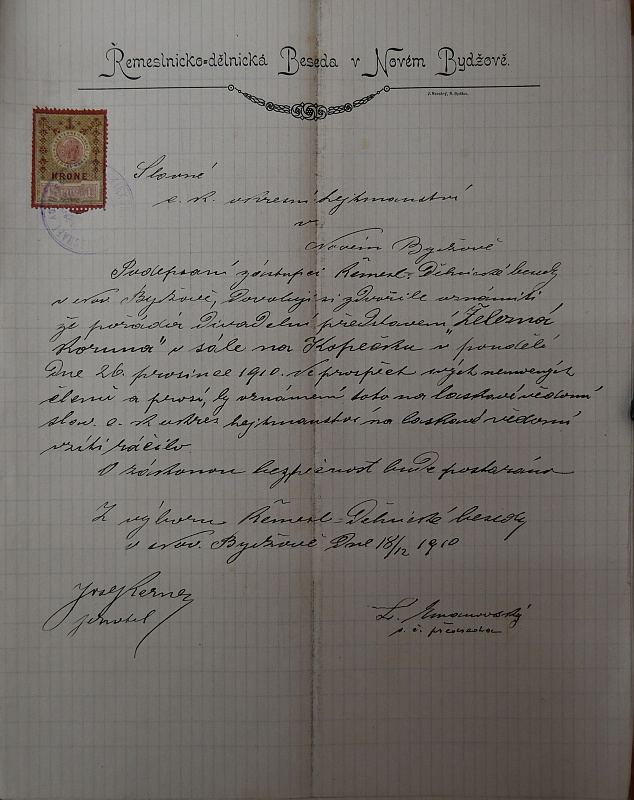 Řemeslnicko-dělnická Beseda v Novém Bydžově.
1
KRONE
Slovné
c. k. okresní hejtmanství
v
Novém Bydžově
Podepsaní zástupci Řemesl.-Dělnické besedy
v Nov. Bydžově, Dovolují si zdvořile oznámiti
že pořádá Divadelní představení "Železná
Koruna" v sále na Kopečku v pondělí
Dne 26. prosince 1910. Ve prospěch svých nemocných
členů a prosí, by oznámení toto na laskavé vědomí
slov. c. k. okres hejtmanství na laskavé vědomí
vzíti ráčilo
O zákonou bezpečnost bude postaráno
Z výboru Řemesl-Dělnické besedy
v Nov. Bydžově Dne 18/12 1910
Josef
jednatel
L.
t. č. předseda